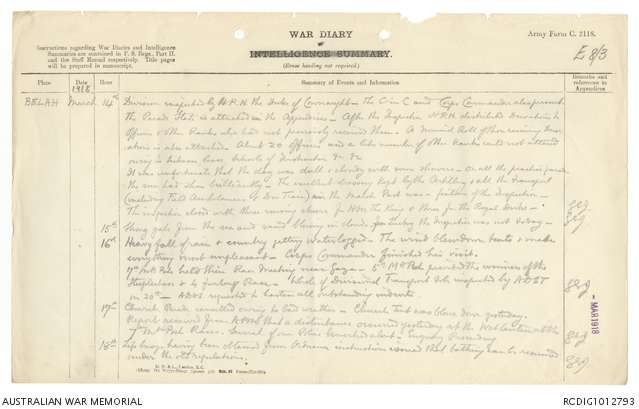 WAR DIARY
or
INTELLIGENCE SUMMARY.
(Erase heading not required.)
Army Form C. 2118.
E 8/3
Instructions regarding War Diaries and Intelligence
Summaries are contained in F. S. Regs., Part II.
and the Staff Manual respectively. Title pages
will be prepared in manuscript.
Place Date Hour Summary of Events and Information Remarks and references to Appendices
1918
BELAH March 14th Division inspected by H.R.H. the Duke of Connaught - the C in C and Corps Commander also present
the Parade State is attached in the Appendices - After the Inspection H.R.H. distributed Decorations to
Officers & Other Ranks who had not previously received them - A Nominal Roll of those receiving Decor
ations is also attached. About 20 Officers and a like number of Other Ranks could not attend
owing to Schools of Instruction &c &c
It was unfortunate that the day was dull & cloudy with some showers - on all the practice parades
the sun had shone brilliantly - The excellent dressing kept by the Artillery & all the Transport
(including Field Ambulances & Div Train) in the March Past was a feature of the Inspection -
The inspection closed with three rousing cheers for HM the King & three for the Royal Duke -
15th Strong gale from the sea and sand blowing in clouds, the Inspection was not today -
16th Heavy fall of rain & country getting waterlogged - The wind blew down tents & made
everything most unpleasant - Corps Commander finished his visit.
7th Mtd Bde held their Race Meeting near Gaza - 5th Mtd Bde provided the winners of the
Steeplechase & 4 furlong Race - of Divisional Transport to be inspected by ADST
on 20th - ADOS requested to hasten all outstanding indents
17th Church Parade cancelled owing to bad weather - Church Tent was blown down yesterday.
Report received from APM that a disturbance occurred yesterday at the at the
7th Mtd Bde Races. Several of our Police - Enquiry Proceeding
18th having been obtained from Ordnance instructions issued that bathing can be resumed
under the old regulations.
- MAR 1918
AUSTRALIAN WAR MEMORIAL
RCDIG1012793